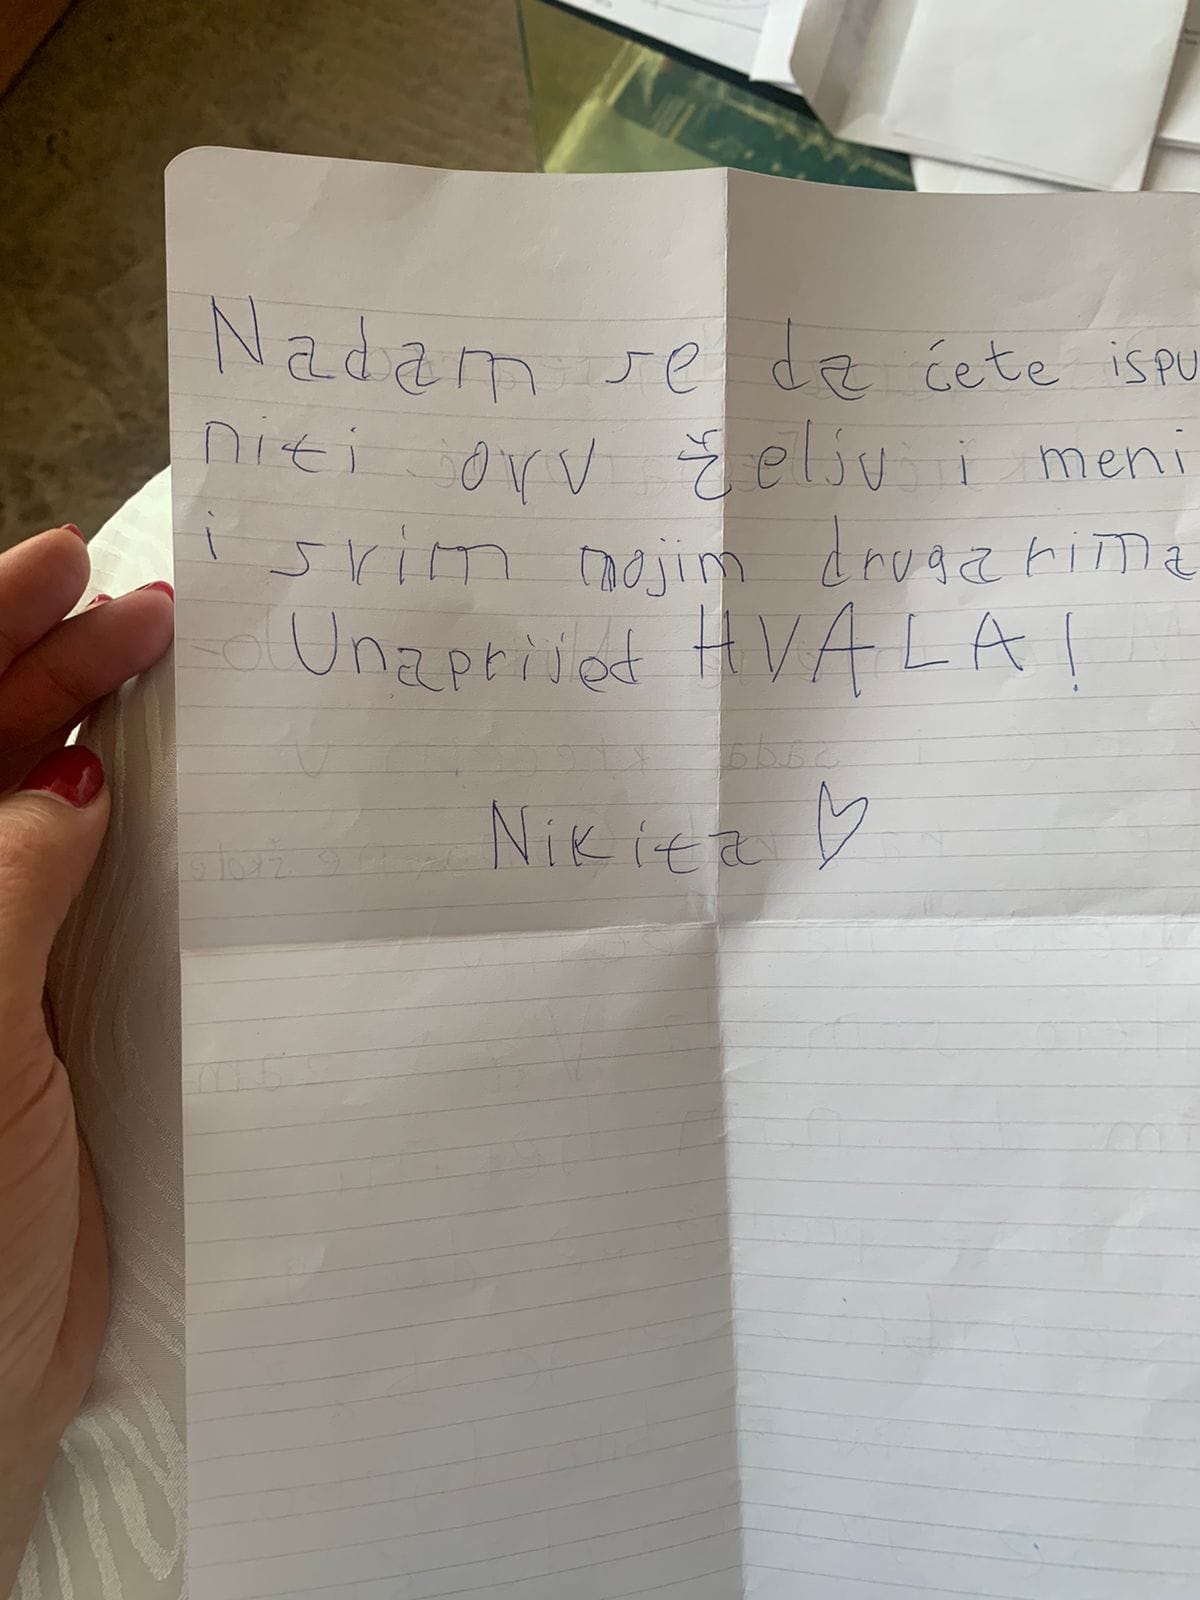 Nadam se da ćete ispu
niti ovu želju i meni
i svim mojim drugarima
Unaprijed HVALA!
Nikita